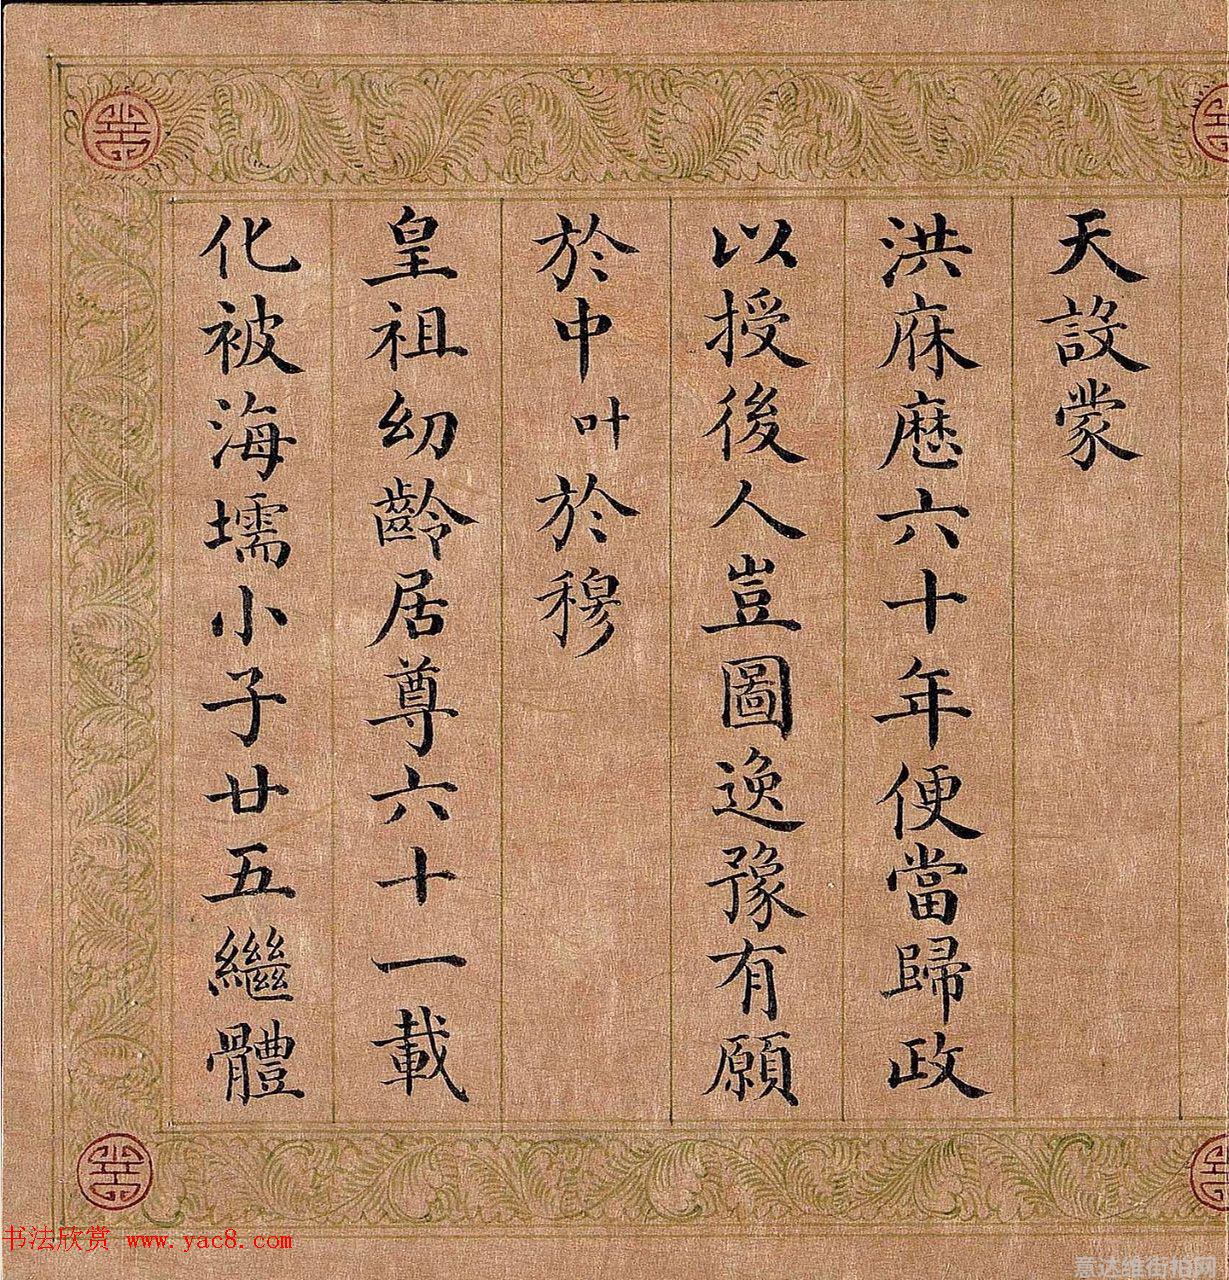 天設蒙
洪庥歴六十年便當歸政
以授後人豈圖逸豫有願
於中叶於穆
皇祖幼齡居尊六十一載
化被海壖小子廿五繼體
书法欣赏 www.yac8.com
意达维街拍网